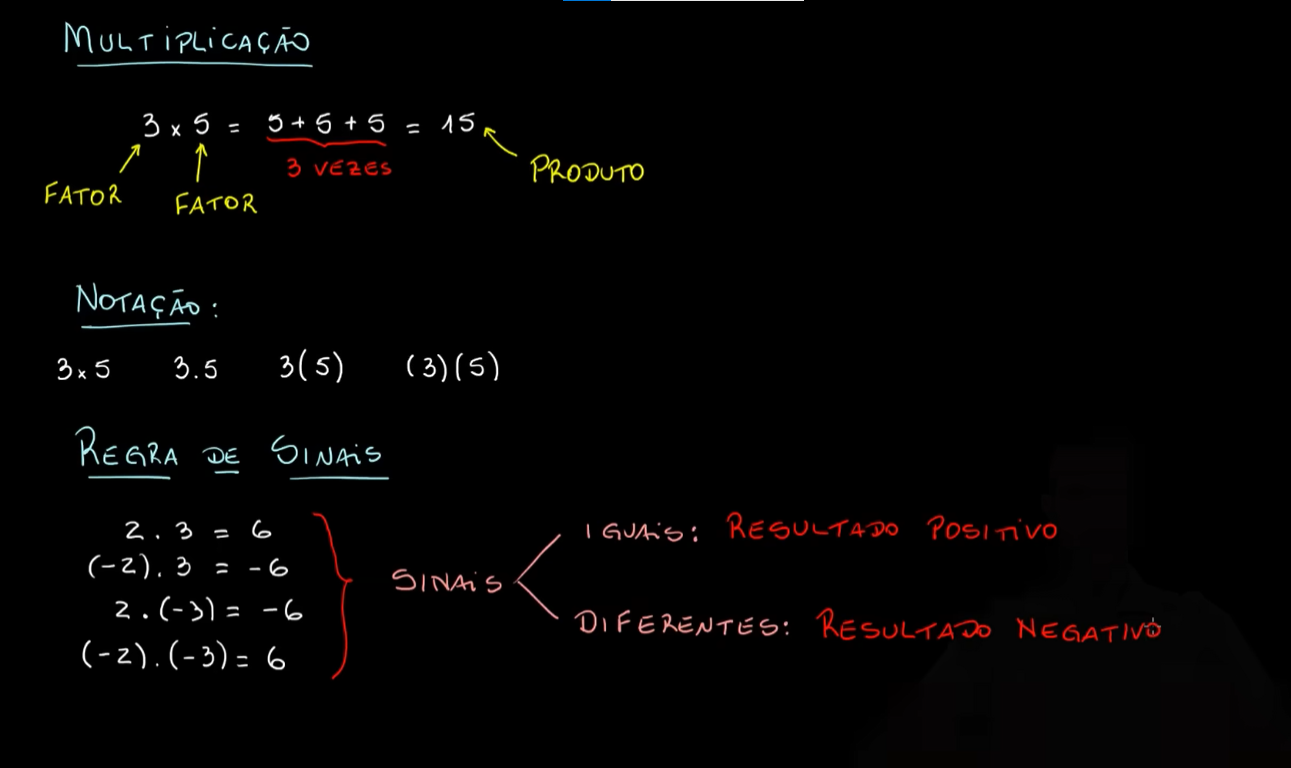 MULTIPLICAÇÃO
3 x 5 = 5 + 5 + 5 = 15
3 VEZES
PRODUTO
FATOR
FATOR
NOTAÇÃO:
3 x 5 3.5 3(5) (3)(5)
REGRA DE SINAIS
2 . 3 = 6
(-2) . 3 = -6
2 . (-3) = -6
(-2) . (-3) = 6
SINAIS
IGUAIS: RESULTADO POSITIVO
DIFERENTES: RESULTADO NEGATIVO